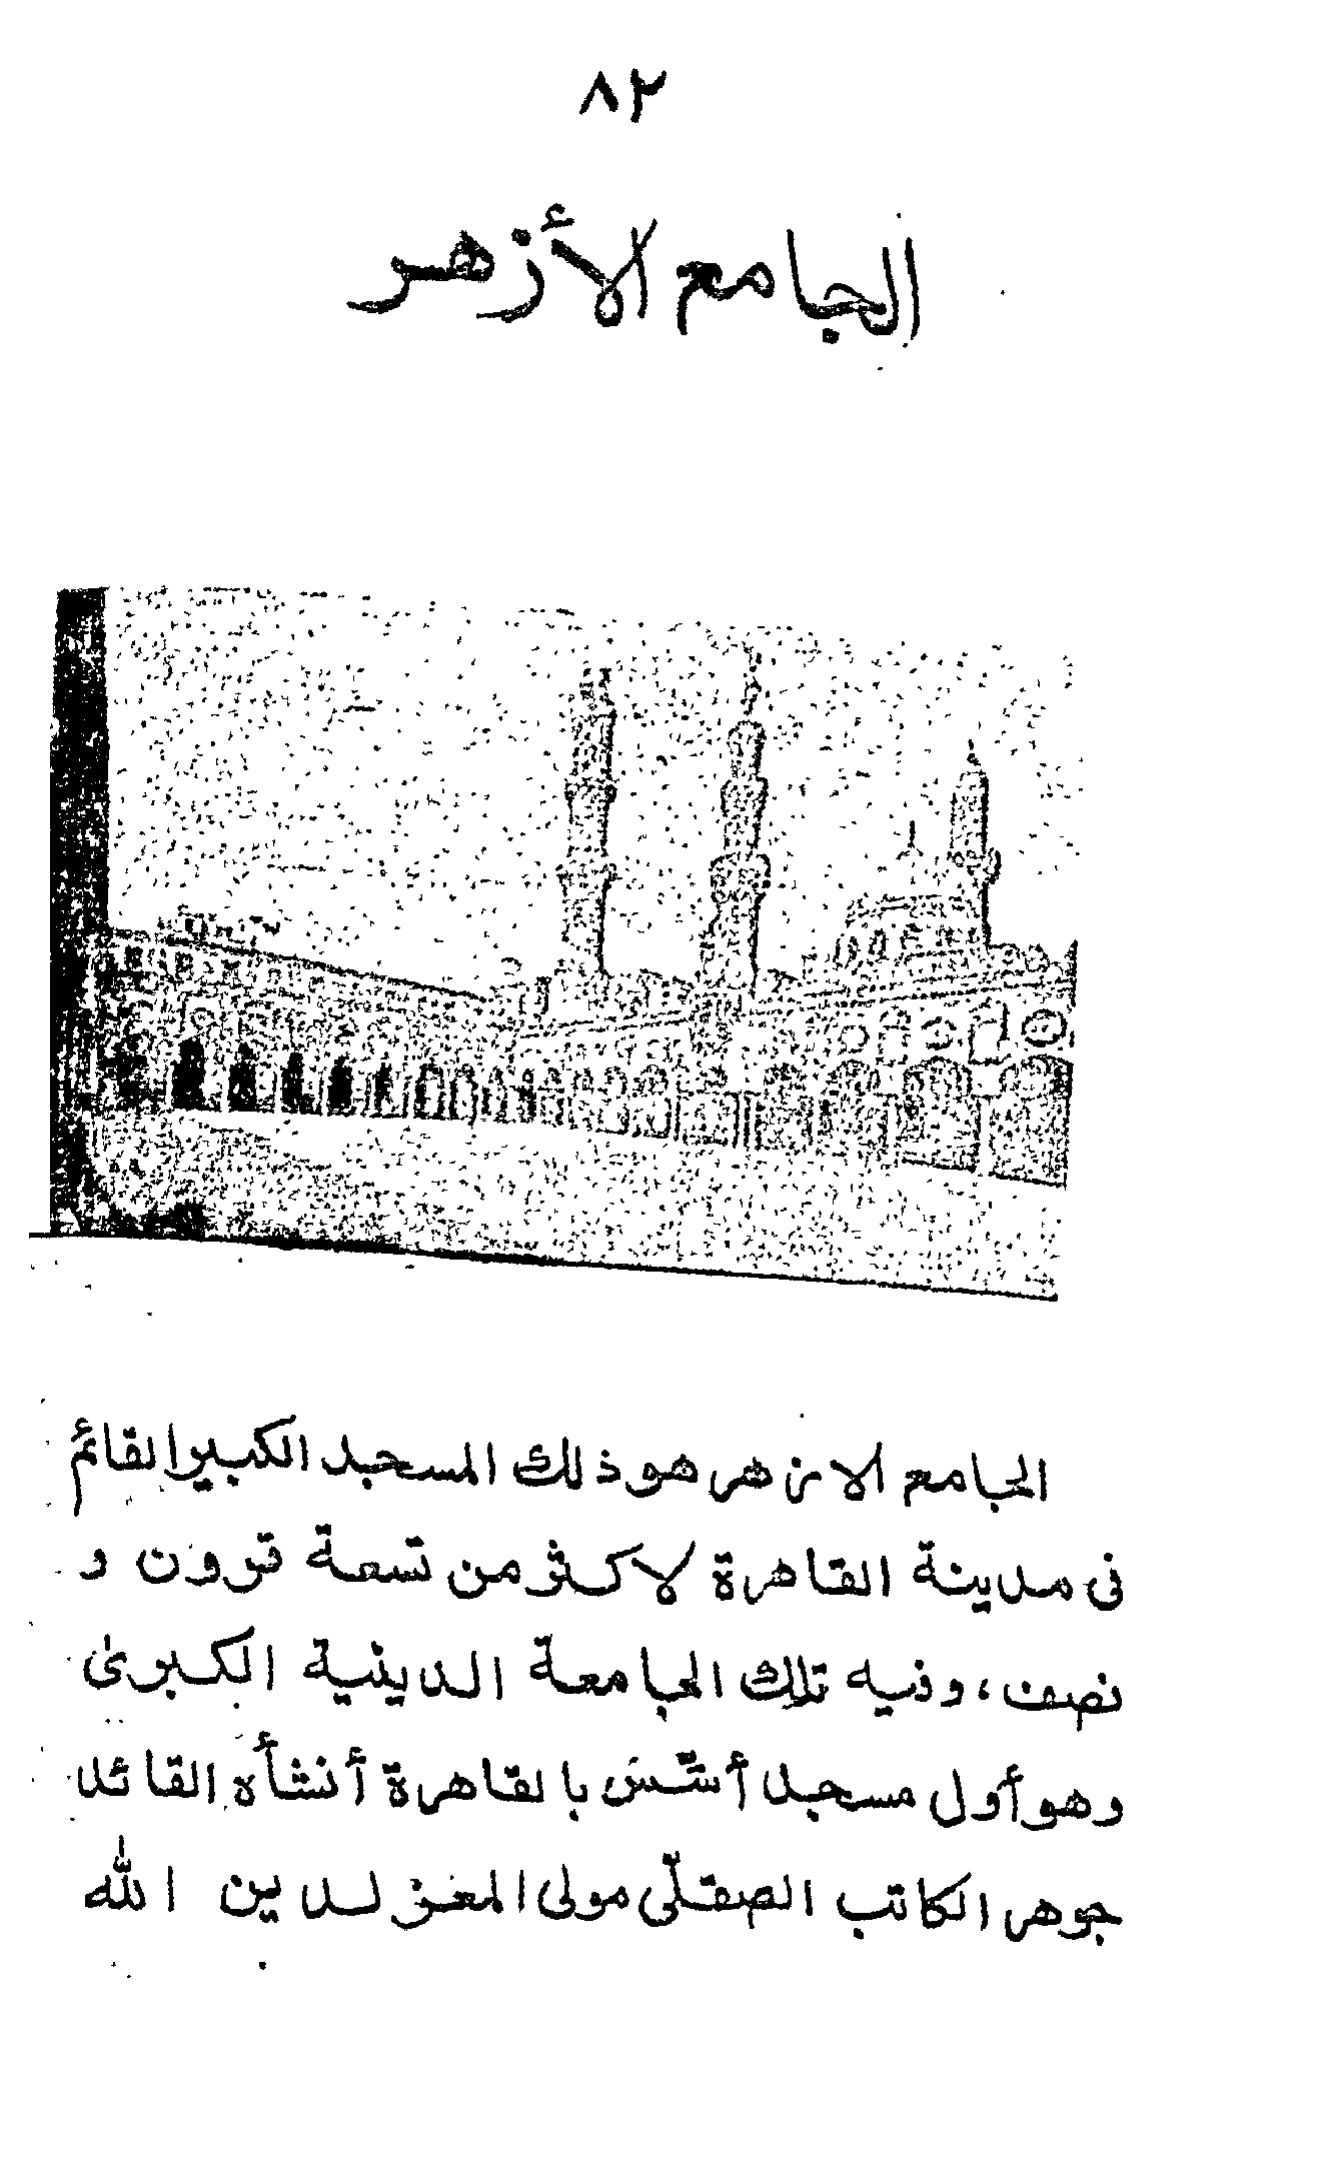 ٨٢
الجامع الأزهر
الجامع الازهر هو ذلك المسجد الكبير القائم
فى مدينة القاهرة لاكثر من تسعة قرون و
نصف، وفيه تلك الجامعة الدينية الكبرى
وهو أول مسجد أسّس بالقاهرة أنشأه القائد
جوهر الكاتب الصقلّى مولى المعز لدين الله